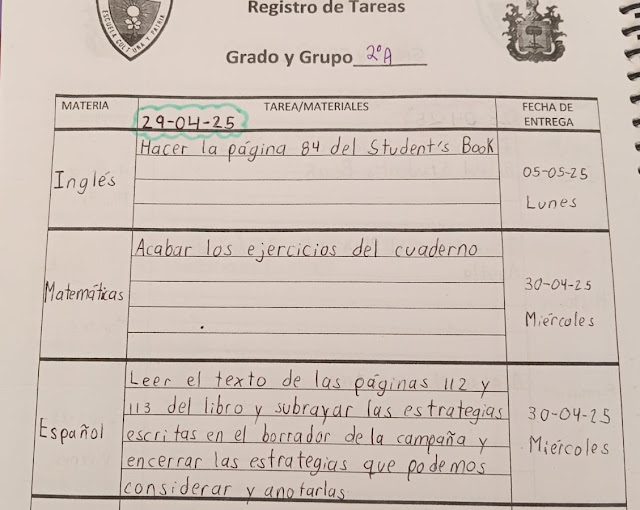 ESCUELA CULTURA Y PATRIA
Registro de Tareas
Grado y Grupo 2°A
MATERIA
TAREA/MATERIALES
FECHA DE
ENTREGA
29-04-25
Inglés
Hacer la página 84 del Student's Book
05-05-25
Lunes
Matemáticas
Acabar los ejercicios del cuaderno
30-04-25
Miércoles
Español
Leer el texto de las páginas 112 y
113 del libro y subrayar las estrategias
escritas en el borrador de la campaña y
encerrar las estrategias que podemos
considerar y anotarlas
30-04-25
Miércoles